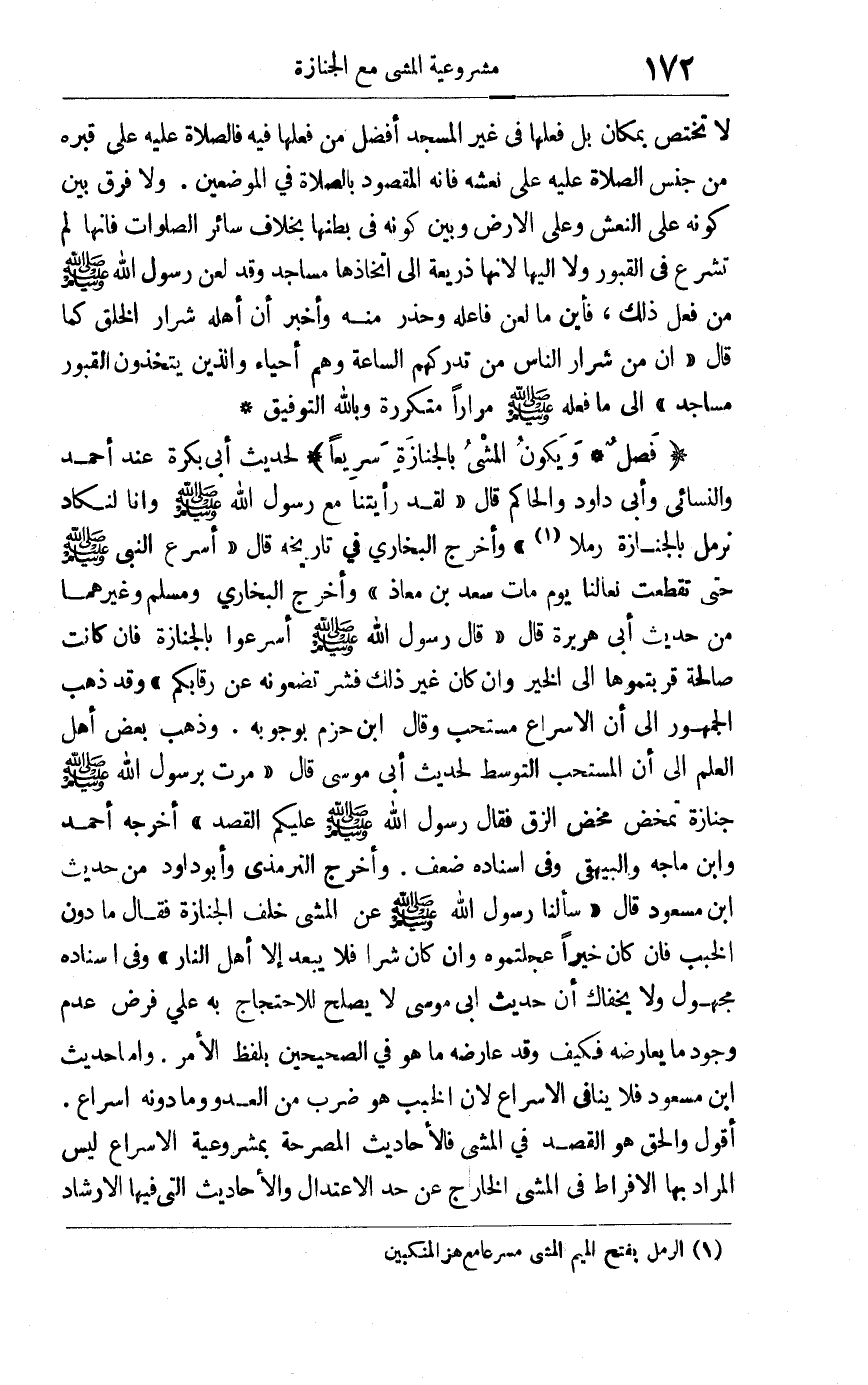 ١٧٢ مشروعية المشى مع الجنازة
لا تختص بمكان بل فعلها فى غير المسجد أفضل من فعلها فيه فالصلاة عليه على قبره
من جنس الصلاة عليه على نعشه فانه المقصود بالصلاة في الموضعين . ولا فرق بين
كونه على النعش وعلى الارض وبين كونه فى بطنها بخلاف سائر الصلوات فانها لم
تشرع فى القبور ولا اليها لانها ذريعة الى اتخاذها مساجد وقد لعن رسول الله ﷺ
من فعل ذلك ، فأين ما لعن فاعله وحذر منـــه وأخبر أن أهله شرار الخلق كما
قال « ان من شرار الناس من تدركهم الساعة وهم أحياء والذين يتخذون القبور
مساجد » الى ما فعله ﷺ مراراً متكررة وبالله التوفيق *
﴿ فَصلٌ * وَيَكونُ المشْىُ بالجنازَةِ سَريعاً ﴾ لحديث أبى بكرة عند أحمـد
والنسائى وأبى داود والحاكم قال « لقـد رأيتنا مع رسول الله ﷺ وانا لنـكاد
نرمل بالجنـازة رملا (١) » وأخرج البخاري في تاريخه قال « أسرع النبى ﷺ
حتى تقطعت نعالنا يوم مات سعد بن معاذ » وأخرج البخاري ومسلم وغيرهمـا
من حديث أبى هريرة قال « قال رسول الله ﷺ أسرعوا بالجنازة فان كانت
صالحة قربتموها الى الخير وان كان غير ذلك فشر تضعونه عن رقابكم » وقد ذهب
الجمهـور الى أن الاسراع مستحب وقال ابن حزم بوجوبه . وذهب بعض أهل
العلم الى أن المستحب التوسط لحديث أبى موسى قال « مرت برسول الله ﷺ
جنازة تمخض مخض الزق فقال رسول الله ﷺ عليكم القصد » أخرجه أحمـد
وابن ماجه والبيهقى وفى اسناده ضعف . وأخرج الترمذى وأبوداود من حديث
ابن مسعود قال « سألنا رسول الله ﷺ عن المشى خلف الجنازة فقـال ما دون
الخبب فان كان خيراً عجلتموه وان كان شرا فلا يبعد إلا أهل النار » وفى اسناده
مجهـول ولا يخفاك أن حديث ابى موسى لا يصلح للاحتجاج به علي فرض عدم
وجود ما يعارضه فـكيف وقد عارضه ما هو في الصحيحين بلفظ الأمر . واما حديث
ابن مسعود فلا ينافى الاسراع لان الخبب هو ضرب من العـدو وما دونه اسراع .
أقول والحق هو القصـد في المشى فالأحاديث المصرحة بمشروعية الاسراع ليس
المراد بها الافراط فى المشى الخارج عن حد الاعتدال والأحاديث التى فيها الارشاد
(١) الرمل بفتح الميم المشى مسرعا مع هز المنكبين